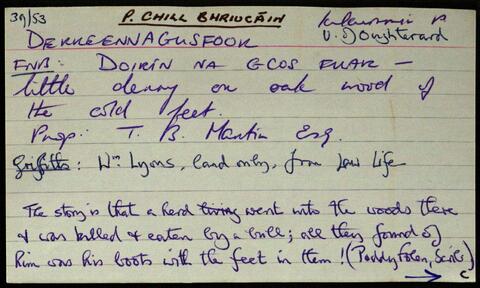 39/53
P. CHILL BHRIOCÁIN
U. Oughterard
DERREENNAGUSFOOR
FNB: DOIRÍN NA GCOS FUAR —
little derry or oak wood of
the cold feet.
Prop: T. B. Martin Esq.
Griffiths: Wm Lyons, land only, from Law Life
The story is that a herd living went into the woods there
& was killed & eaten by a bull; all they found of
him was his boots with the feet in them! (Paddy Folen, Seirbs)